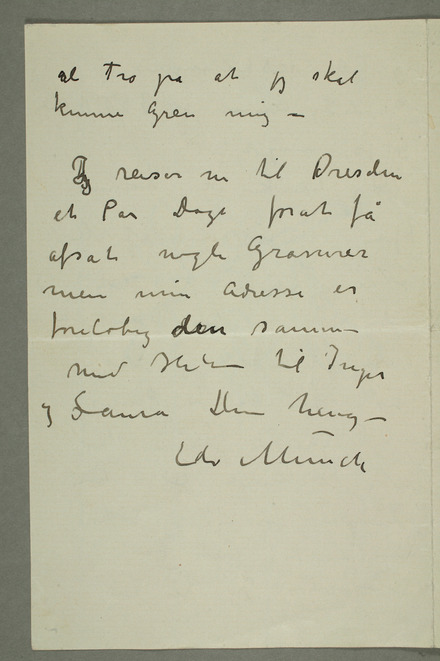 al Tro på at jeg skal
kunne greie mig –
Jeg reiser nu til Dresden
et Par Dage forat få
afsat nogle Gravurer
men min Adresse er
foreløbig den samme –
Med Hilsen til Inger
og Laura Din heng –
Edv Munch